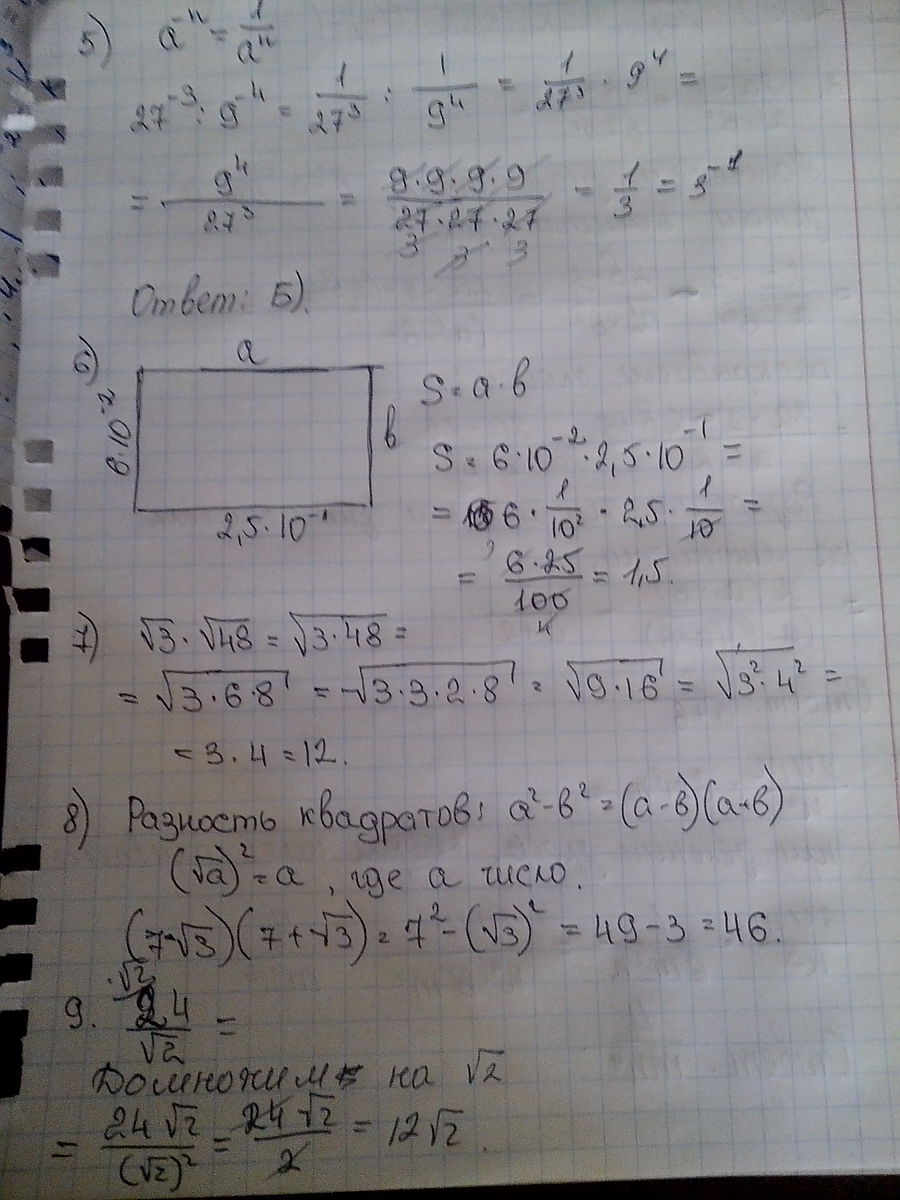 5) a⁻ⁿ = 1/aⁿ
27⁻³ : 9⁻⁴ = 1/27³ : 1/9⁴ = 1/27³ · 9⁴ =
= 9⁴/27³ = 9·9·9·9/27·27·27 = 1/3 = 3⁻¹
3 3 3
Ответ: Б).
6) a
6·10⁻²
в
2,5·10⁻¹
S = a·в
S = 6·10⁻²·2,5·10⁻¹ =
= 6 · 1/10² · 2,5 · 1/10 =
= 6·25/100 = 1,5.
4
7) √3 · √48 = √3·48 =
= √3·6·8 = √3·3·2·8 = √9·16 = √3²·4² =
= 3·4 = 12.
8) Разность квадратов: a²-в² = (a-в)(a+в)
(√a)² = a, где a число.
(7-√3)(7+√3) = 7² - (√3)² = 49-3 = 46.
·√2
9. 24/√2 =
Домножим на √2
= 24√2/(√2)² = 24√2/2 = 12√2.